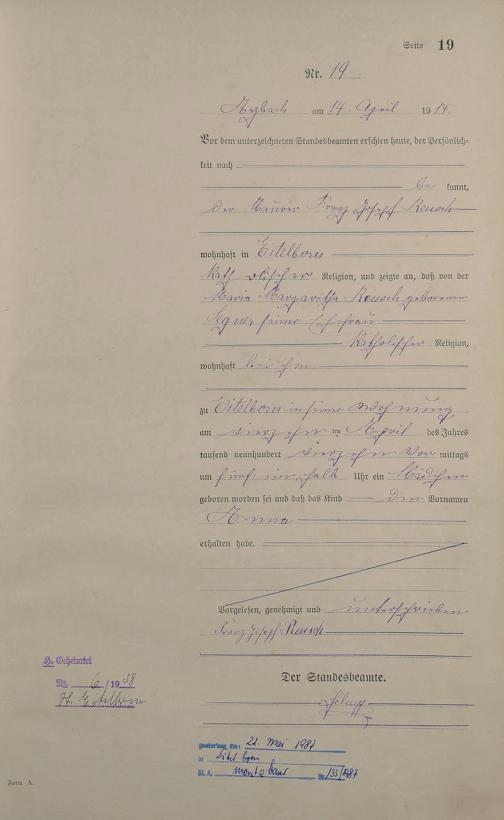 Seite 19
Nr. 19
Arzbach am 14. April 1914.
Vor dem unterzeichneten Standesbeamten erschien heute, der Persönlich-
keit nach
be kannt,
der Maurer Franz Joseph Reusch
wohnhaft in Eitelborn
kath olischer Religion, und zeigte an, daß von der
Maria Margaretha Reusch geborenen
seiner Ehefrau
katholischer Religion,
wohnhaft bei ihm
zu Eitelborn in seiner Wohnung
am vierzehn ten April des Jahres
tausend neunhundert vierzehn Vor mittags
um fünf ein halb Uhr ein Mädchen
geboren worden sei und daß das Kind den Vornamen
Anna
erhalten habe.
Vorgelesen, genehmigt und unterschrieben
Franz Joseph Reusch
Der Standesbeamte.
H. Geheiratet
Nr. 6/1938
St. Eitelborn
gestorben am: 22. Mai 1987
in Eitelborn
St. A. Montabaur Nr. 133/1987
Form A.